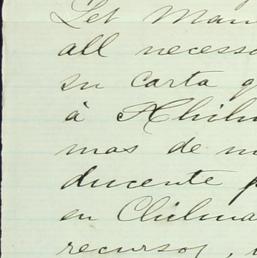 Let Man
all necess
su carta q
á Chihu
mas de m
ducente p
en Chihua
recursos,